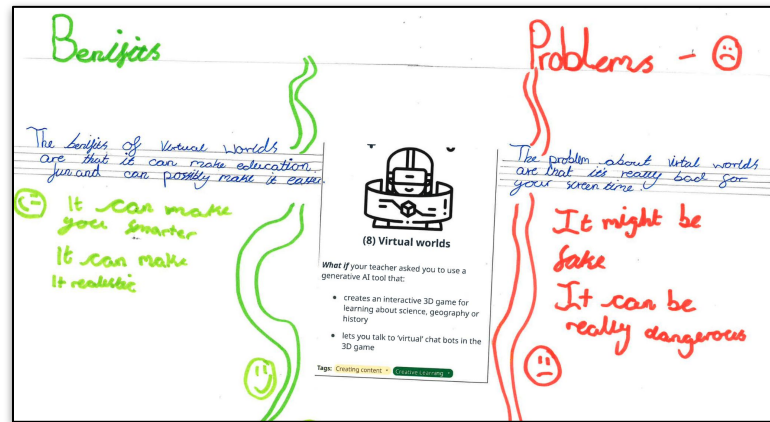 Benifits
The benifits of Virtual Worlds
are that it can make education
fun and can possibly make it easier.
It can make
you smarter
It can make
It realistic
(8) Virtual worlds
What if your teacher asked you to use a
generative AI tool that:
• creates an interactive 3D game for
learning about science, geography or
history
• lets you talk to 'virtual' chat bots in the
3D game
Tags: Creating content × Creative Learning ×
Problems -
The problem about virtal worlds
are that it's really bad for
your screen time.
It might be
fake
It can be
really dangerous